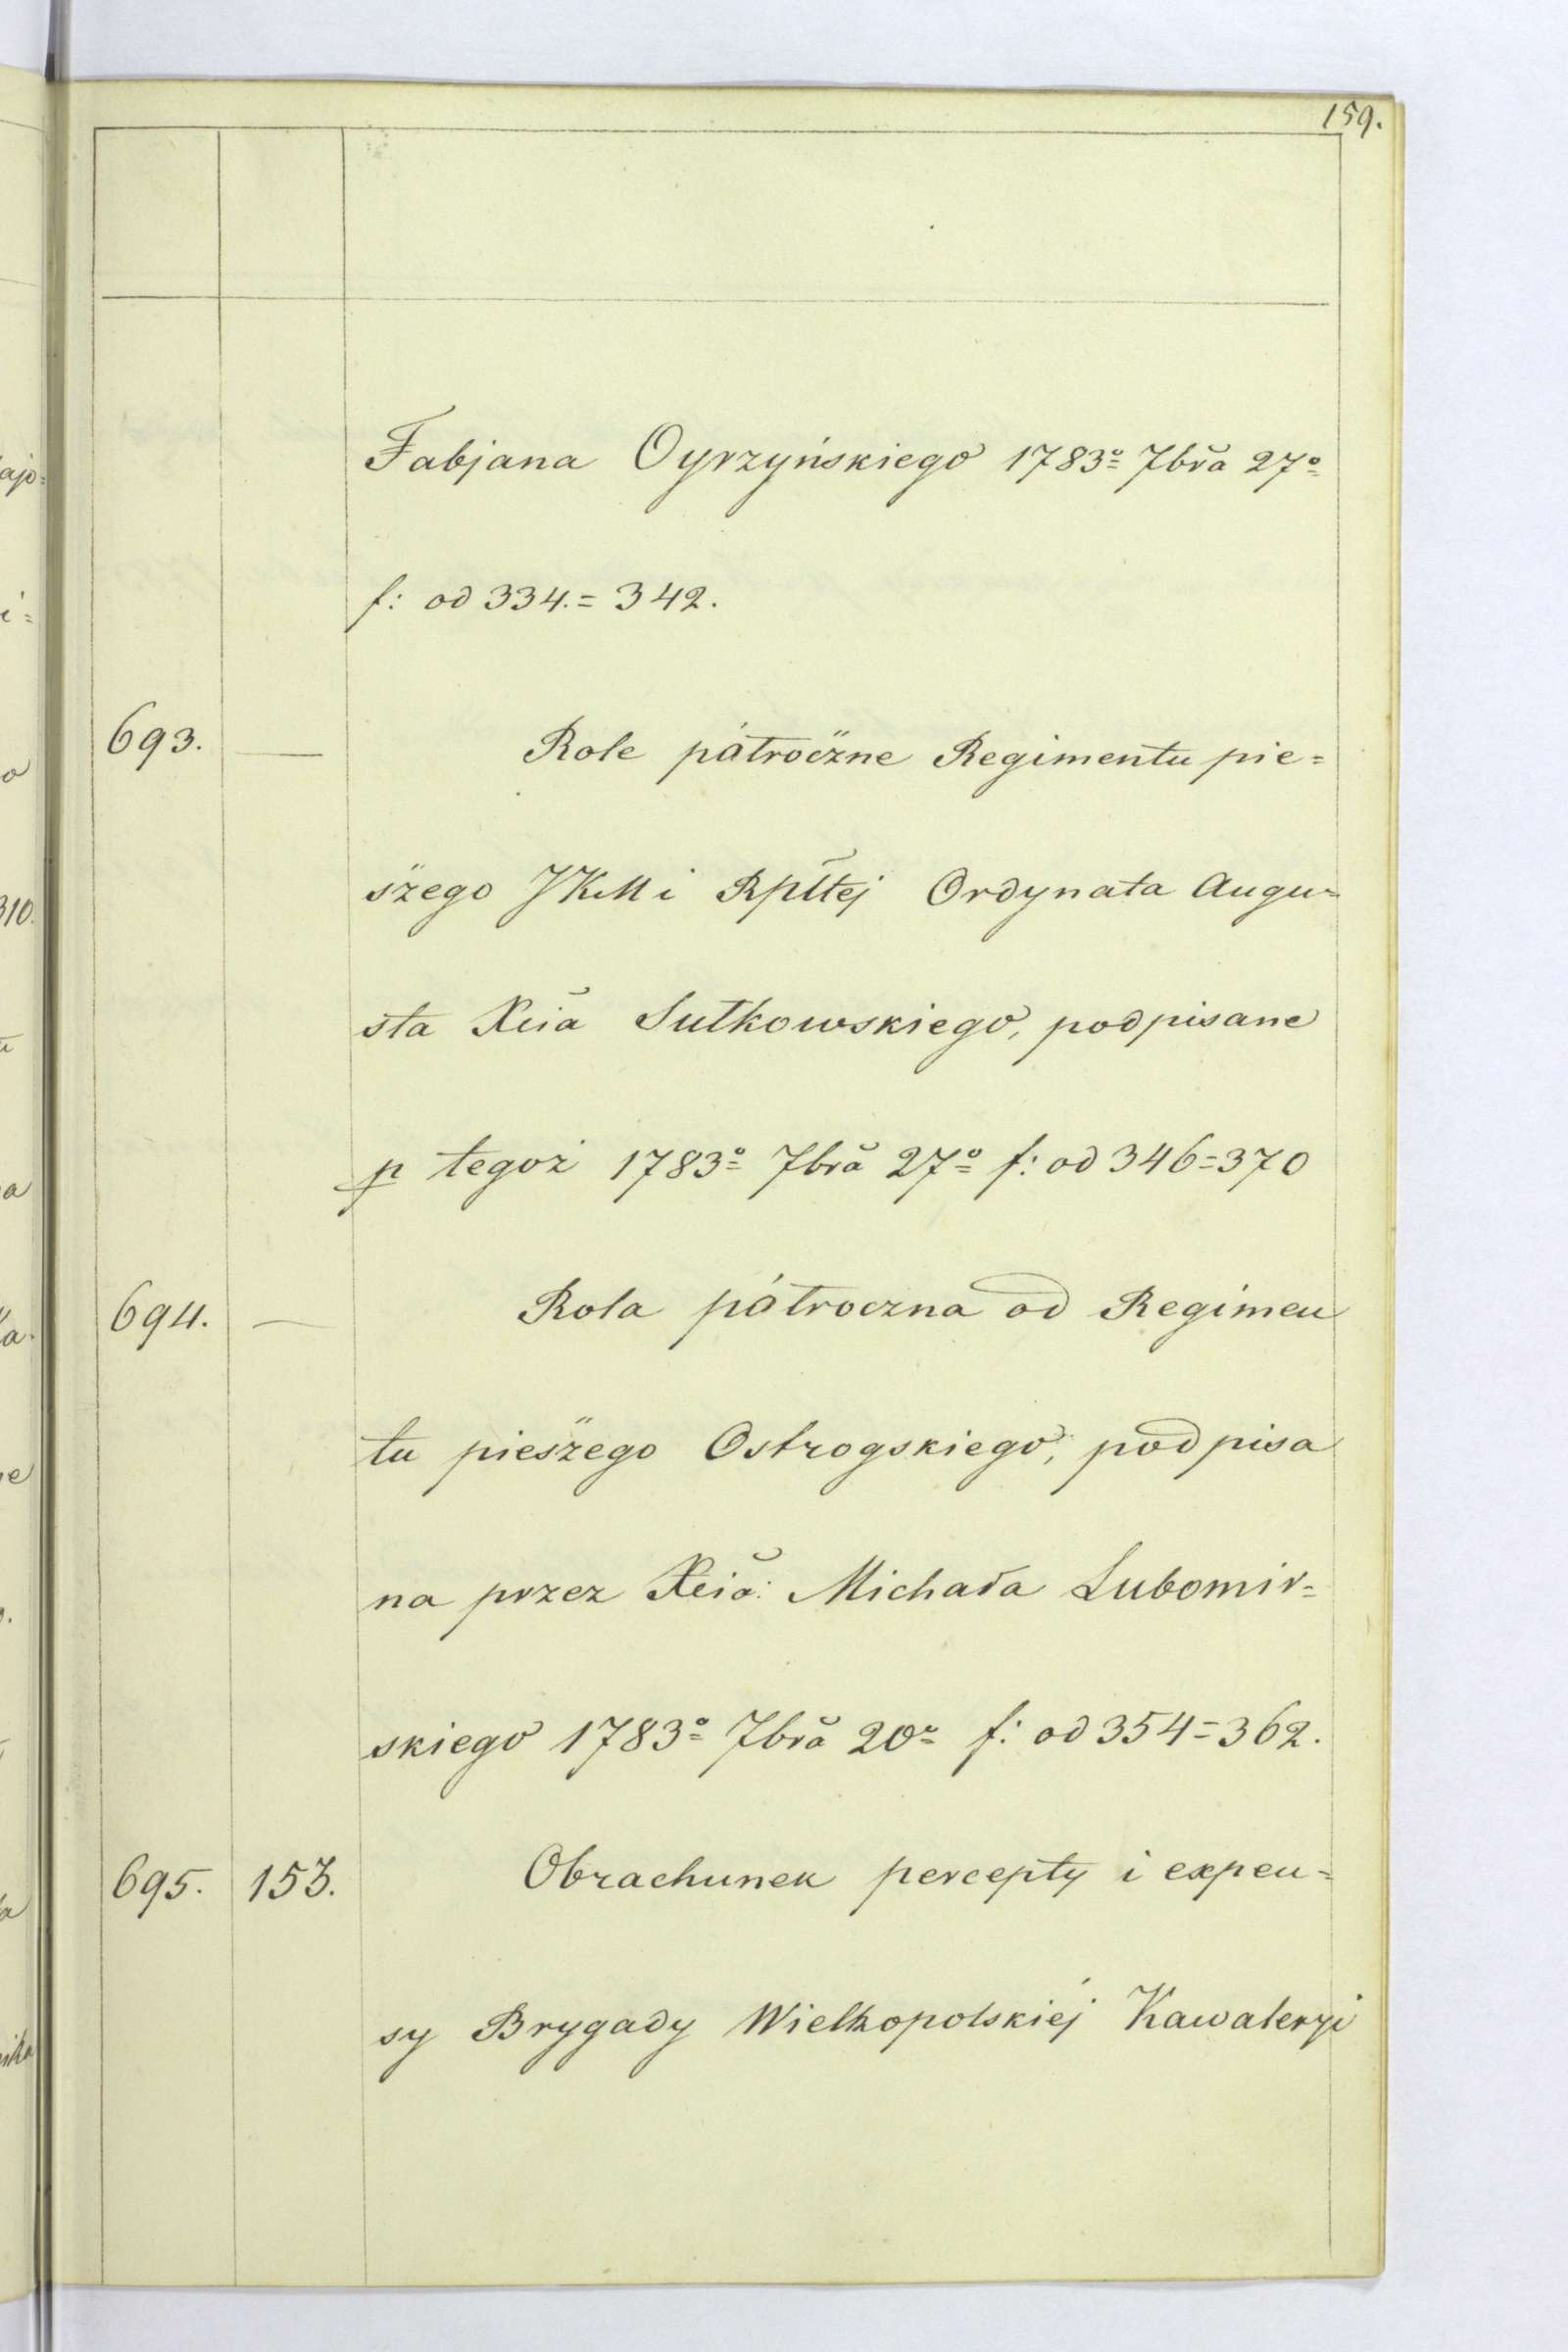 159.
Fabjana Oyrzyńskiego 1783º 7bra 27º
f: od 334.=342.
693. — Role półroczne Regimentu pie=
szego JKM i Rpltej Ordynata Augu=
sta Xcia Sułkowskiego, podpisane
p tegoż 1783º 7bra 27º f: od 346=370
694. — Rola półroczna od Regimen
tu pieszego Ostrogskiego, podpisa
na przez Xcia: Michała Lubomir=
skiego 1783º 7bra 20º f: od 354=362.
695. 153. Obrachunek percepty i expen=
sy Brygady Wielkopolskiéj Kawaleryi